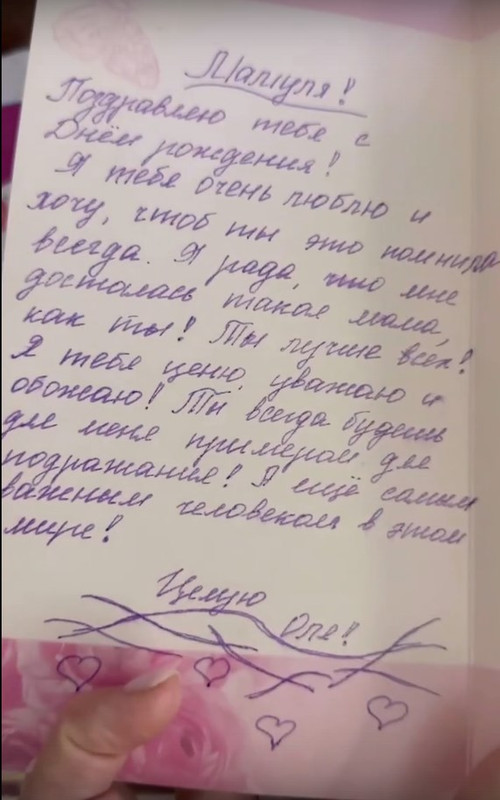 Мамуля!
Поздравляю тебя с
Днём рождения!
Я тебя очень люблю и
хочу, чтоб ты это помнила
всегда. Я рада, что мне
досталась такая мама,
как ты! Ты лучше всех!
Я тебе ценю, уважаю и
обожаю! Ты всегда будешь
для меня примером для
подражания! А ещё самым
важным человеком в этом
мире!
Целую
Оля!